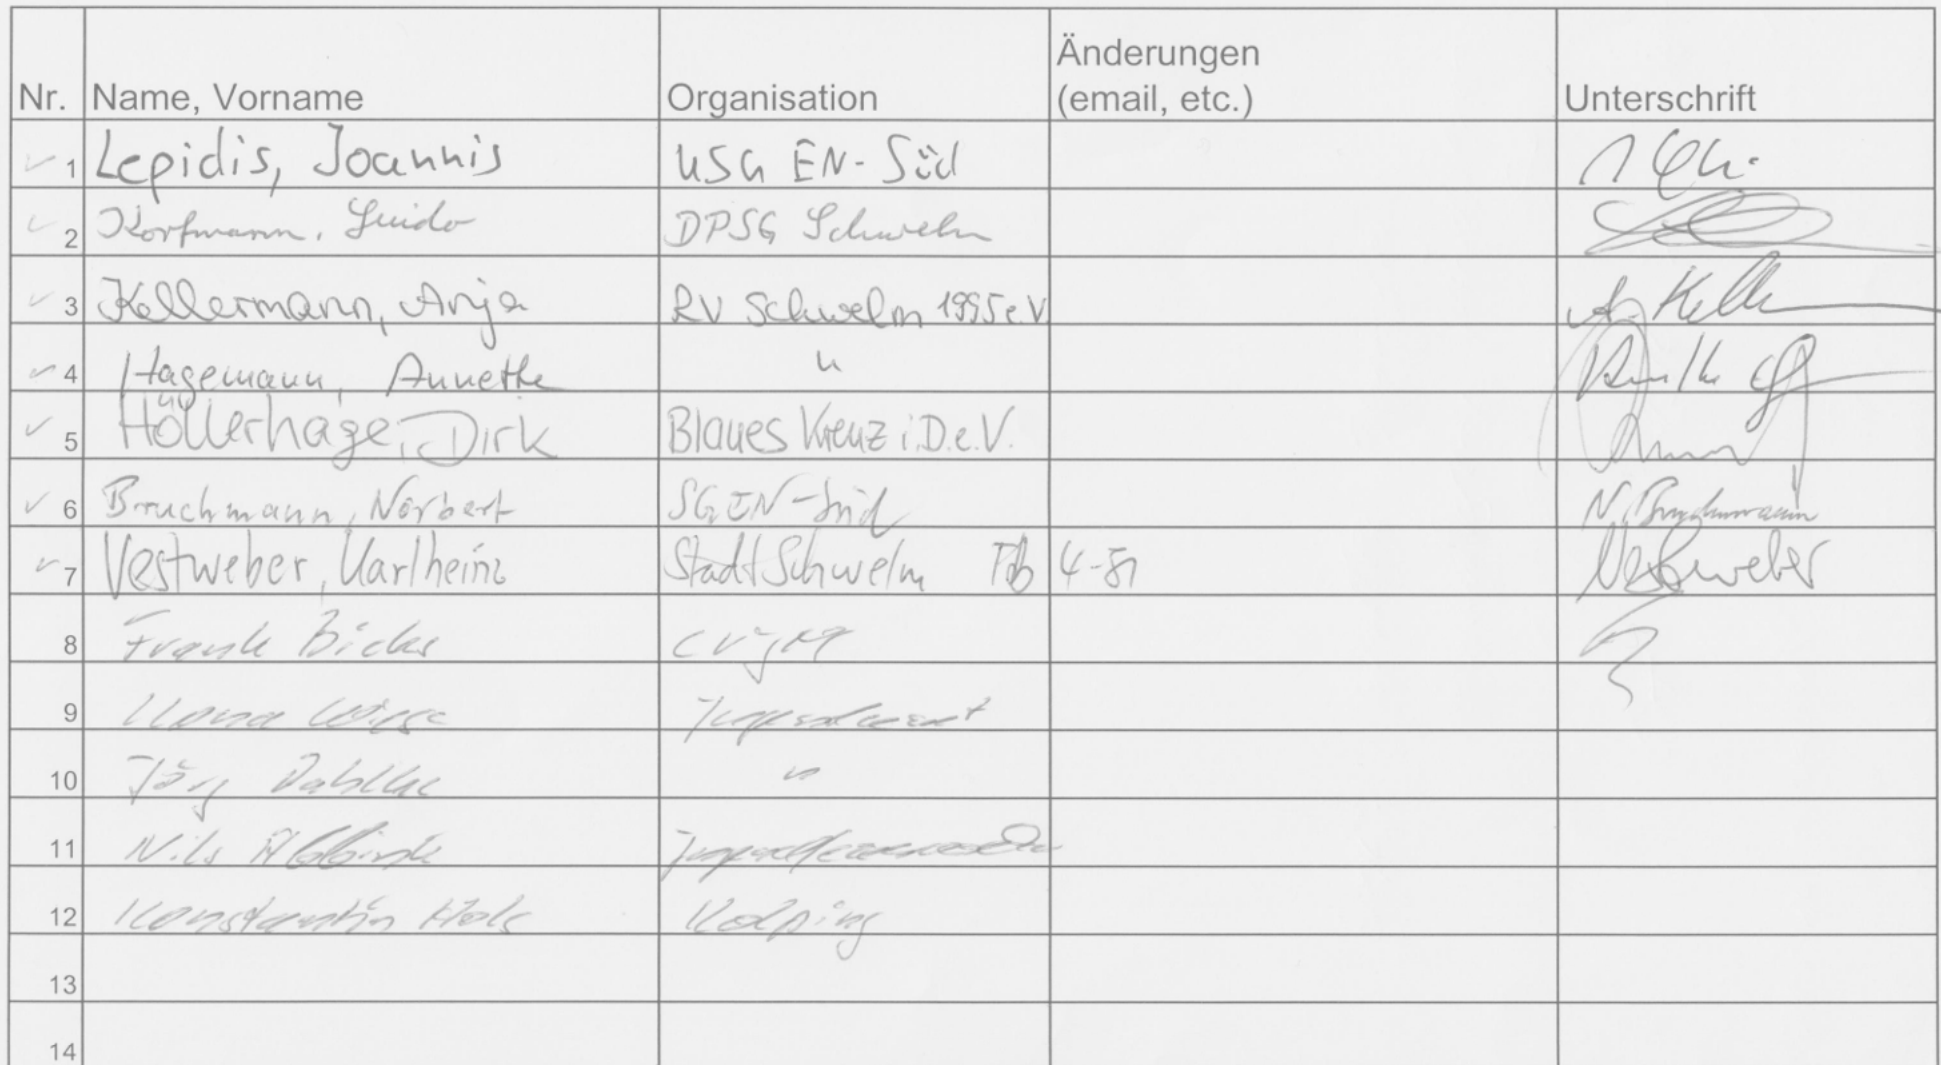 Änderungen
Nr. Name, Vorname Organisation (email, etc.) Unterschrift
1 Lepidis, Joannis USG EN-Süd
2 Korfmann, Guido DPSG Schwelm
3 Kellermann, Anja RV Schwelm 1995 e.V A. Kell
4 Hagemann, Annette "
5 Höllerhage, Dirk Blaues Kreuz i.D.e.V.
6 Bruchmann, Norbert SG EN-Süd N. Bruchmann
7 Vestweber, Karlheinz Stadt Schwelm FB 4-51 Vestweber
8 Frank CVJM
9 Ilona Jugendamt
10 Jörg "
11 Nils
12 Konstantin Kolping
13
14